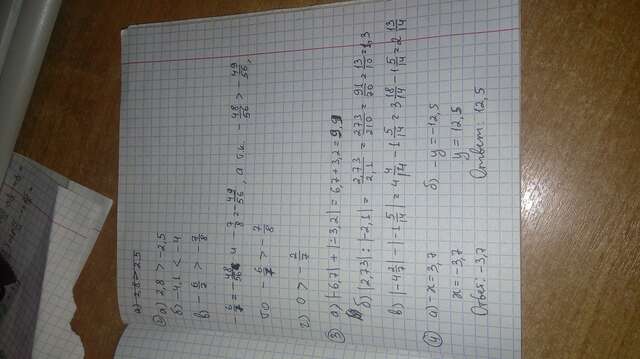 а) 2,8 > -2,5
② а) 2,8 > -2,5
б) -4,1 < -4
в) -6/7 > -7/8
-6/7 = -48/56 и -7/8 = -49/56, а т.к. -48/56 > -49/56,
то -6/7 > -7/8
г) 0 > -2/7
③ а) |-6,7| + |-3,2| = 6,7 + 3,2 = 9,9
б) |2,73| : |-2,1| = 2,73/2,1 = 273/210 = 91/70 = 13/10 = 1,3
в) |-4 2/7| - |-1 5/14| = 4 4/14 - 1 5/14 = 3 18/14 - 1 5/14 = 2 13/14
④ а) -x = 3,7 б) -y = -12,5
x = -3,7 y = 12,5
Ответ: -3,7 Ответ: 12,5